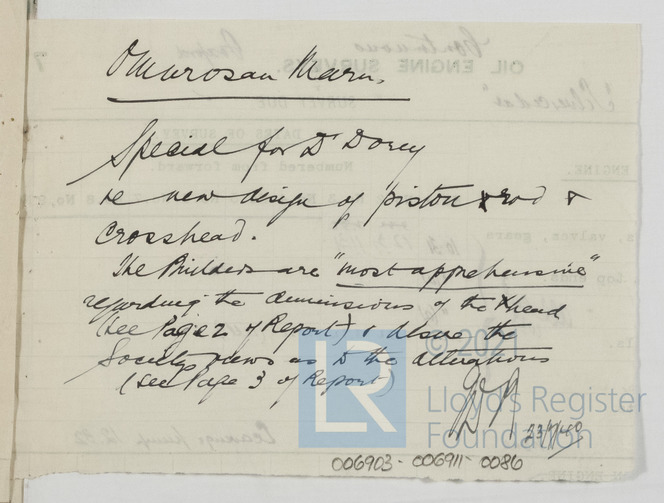 Omurosan Maru.
Special for Dr Dorey
re new design of piston & rod &
Crosshead.
The Builders are "most apprehensive"
regarding the dimensions of the Xhead
(See Page 2 of Report) & desire the
Society's views as to the alterations
(See Page 3 of Report)
23/7/40
006903-006911-0086
LR
© 2021
Lloyd's Register
Foundation
OIL ENGINE SURVEYS.
SURVEY DUE
DATES OF SURVEY
Numbered from forward.
ENGINE.
valves, gears